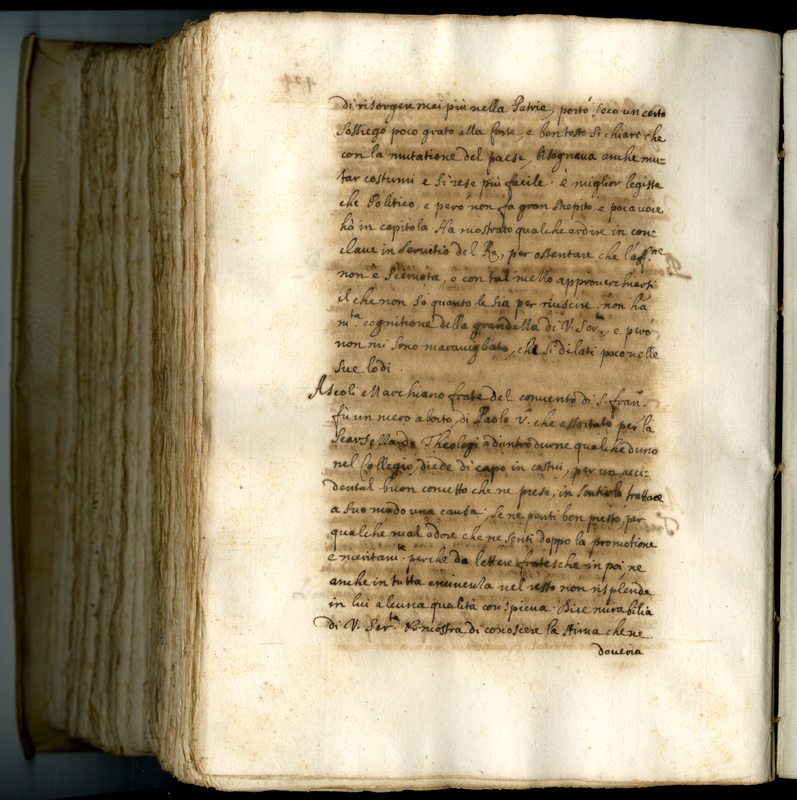 di risorgere mai più nella Patria, portò seco un certo
sossiego poco grato alla Corte, e ben tosto si chiarì che
con la mutatione del paese, bisognava anche mu=
tar costumi e si rese più facile. è miglior legista
che Politico, e però non fa gran strepito e poca voce
hà in capitolo. Ha mostrato qualche ardire in con=
clave in servitio del Rè, per ostentare che l'aff.ne
non è scemata, e con tal mezzo approvecchiarsi
il che non sò quanto le sia per riuscire. non ha
m.ta cognitione della grandezza di V. Ser.tà, e però
non mi sono maravigliato, che si dilati poco nelle
sue lodi.
Ascoli e Marchiano frate del convento di S. Fran.
fù un mero aborto di Paolo V. che essortato per la
de Theologi ad introdurne qualcheduno
nel Collegio, diede di capo in costui, per un acci=
dental buon concetto che ne prese, in sentirlo trattare
a suo modo una causa; se ne pentì ben presto, per
qualche mal odore che ne sentì doppo la promotione
e meritam.te perche da lettere fratesche in poi, ne
anche in tutta eminenza nel resto non risplende
in lui alcuna qualità conspicua. Dice mirabilia
di V. Ser.tà mostra di conoscere la stima che ne
doveria